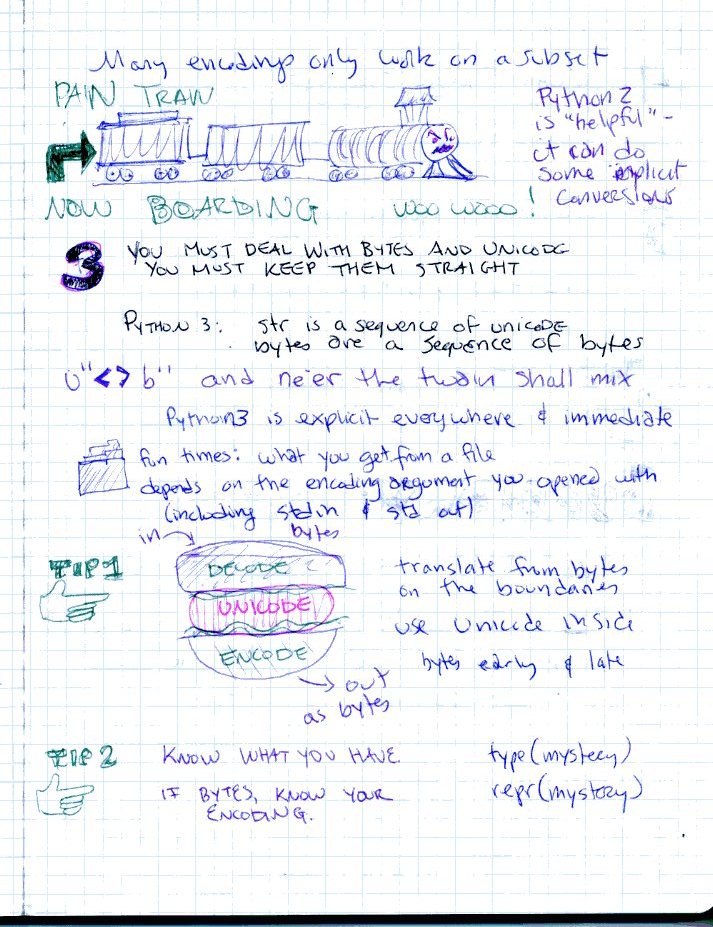 Many encodings only work on a subset
PAIN TRAIN
Python 2
is "helpful" -
it can do
some implicit
conversions
NOW BOARDING woo wooo!
3 YOU MUST DEAL WITH BYTES AND UNICODE
YOU MUST KEEP THEM STRAIGHT
PYTHON 3: str is a sequence of unicode
bytes are a sequence of bytes
u" <> b" and ne'er the twain shall mix
Python3 is explicit everywhere & immediate
fun times: what you get from a file
depends on the encoding argument you opened with
(including stdin & std out)
in bytes
TIP 1
DECODE
UNICODE
ENCODE
out
as bytes
translate from bytes
on the boundaries
use Unicode inside
bytes early & late
TIP 2 KNOW WHAT YOU HAVE.
IF BYTES, KNOW YOUR
ENCODING.
type(mystery)
repr(mystery)